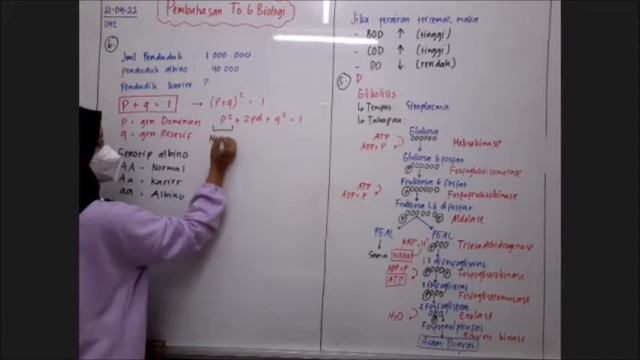 21-04-22
Pembahasan To 6 Biologi
6.
Jml Penduduk : 1 000 000
penduduk albino : 40 000
Penduduk karier ?
P + q = 1 → (P+q)² = 1
P = gen Dominan P² + 2pq + q² = 1
q = gen Resesif
Genotip albino
AA = Normal
Aa = Karier
aa = Albino
Jika perairan tercemar, maka
- BOD ↑ (tinggi)
- COD ↑ (tinggi)
- DO ↓ (rendah)
5. D
Glikolisis
↳ Tempat : Sitoplasma
↳ Tahapan :
Glukosa
ATP
ADP + P
Heksokinase
Glukosa 6 fosfat
Fosfoglukoisomerase
Fruktosa 6 fosfat
ATP
ADP + P
Fosfofruktokinase
Fruktosa 1,6 difosfat
Aldolase
PGAL PGAL
Sama
NAD⁺, H⁺
NADH
Triosa dehidrogenase
1,3 difosfogliserat
ADP + P
ATP
Fosfogliserokinase
3 fosfogliserat
Fosfogliseromutase
2 fosfogliserat
H₂O
Enolase
Fosfoenolpiruvat
kinase
Asam Piruvat